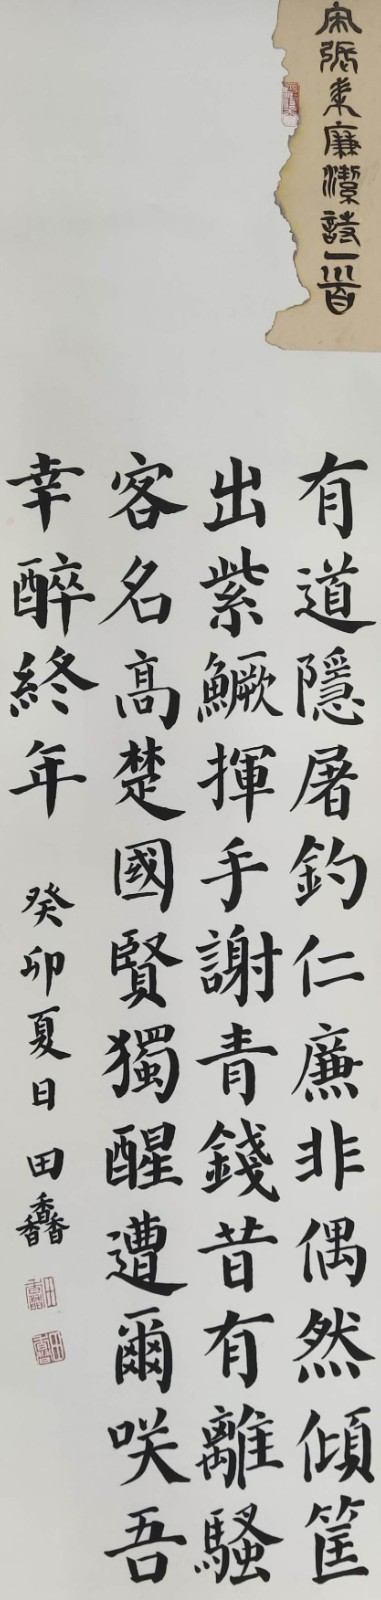 宋張耒廉潔詩一首
有道隱屠釣仁廉非偶然傾筐
出紫鱖揮手謝青錢昔有離騷
客名高楚國賢獨醒遭爾咲吾
幸醉終年
癸卯夏日 田馫